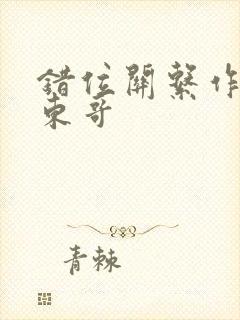 錯位關繫作
東哥
青棘